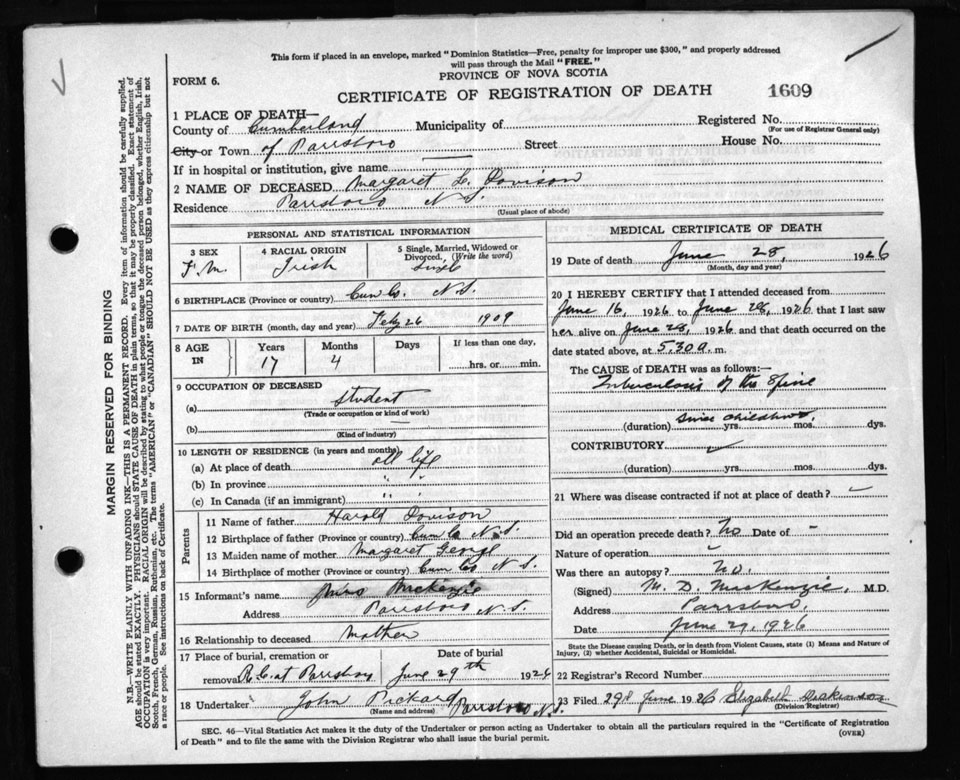 This form if placed in an envelope, marked "Dominion Statistics—Free, penalty for improper use $300," and properly addressed
will pass through the Mail "FREE."
FORM 6.
PROVINCE OF NOVA SCOTIA
CERTIFICATE OF REGISTRATION OF DEATH
1609
1 PLACE OF DEATH—
County of Cumberland Municipality of Registered No.
(For use of Registrar General only)
City or Town of Parrsboro Street House No.
If in hospital or institution, give name
2 NAME OF DECEASED Margaret L. Davison
Residence Parrsboro N.S.
(Usual place of abode)
PERSONAL AND STATISTICAL INFORMATION
3 SEX
F.M.
4 RACIAL ORIGIN
Irish
5 Single, Married, Widowed or
Divorced. (Write the word)
6 BIRTHPLACE (Province or country) Cum Co. N.S.
7 DATE OF BIRTH (month, day and year) Feby 26 1909
8 AGE IN
Years Months Days If less than one day,
17 4 hrs. or min.
9 OCCUPATION OF DECEASED
(a) Student
(Trade or occupation or kind of work)
(b)
(Kind of industry)
10 LENGTH OF RESIDENCE (in years and months)
(a) At place of death all life
(b) In province " "
(c) In Canada (if an immigrant) " "
Parents
11 Name of father Harold Davison
12 Birthplace of father (Province or country) Cum Co N.S.
13 Maiden name of mother Margaret
14 Birthplace of mother (Province or country) Cum Co N.S.
15 Informant's name Mackenzie
Address Parrsboro N.S.
16 Relationship to deceased Mother
17 Place of burial, cremation or Date of burial
removal R.C. at Parrsboro June 29th 1926
18 Undertaker John Pickard Parrsboro N.S.
(Name and address)
MEDICAL CERTIFICATE OF DEATH
19 Date of death June 28, 1926
(Month, day and year)
20 I HEREBY CERTIFY that I attended deceased from
June 16, 1926 to June 28, 1926 that I last saw
her alive on June 28, 1926 and that death occurred on
date stated above, at 5.30 a. m.
The CAUSE of DEATH was as follows:—
Tuberculosis of the Spine
since childhood
(duration) yrs. mos. dys.
CONTRIBUTORY
(duration) yrs. mos. dys.
21 Where was disease contracted if not at place of death?
Did an operation precede death? No Date of –
Nature of operation
Was there an autopsy? No.
(Signed) M. D. MacKenzie, M.D.
Address Parrsboro,
Date June 29, 1926
State the Disease causing Death, or in death from Violent Causes, state (1) Means and Nature of
Injury, (2) whether Accidental, Suicidal or Homicidal.
22 Registrar's Record Number
23 Filed 29th June 1926 Elizabeth
(Division Registrar)
SEC. 46—Vital Statistics Act makes it the duty of the Undertaker or person acting as Undertaker to obtain all the particulars required in the "Certificate of Registration
of Death" and to file the same with the Division Registrar who shall issue the burial permit.
(OVER)
MARGIN RESERVED FOR BINDING
N.B.—WRITE PLAINLY WITH UNFADING INK—THIS IS A PERMANENT RECORD. Every item of information should be carefully supplied.
AGE should be stated EXACTLY. PHYSICIANS should STATE CAUSE OF DEATH in plain terms, so that it may be properly classified. Exact statement of
OCCUPATION is very important. RACIAL ORIGIN will be described by stating to what people or tongue the deceased person belonged, whether English, Irish,
Scotch, French, German, Russian, Ruthenian, etc. The terms "AMERICAN" or "CANADIAN" SHOULD NOT BE USED as they express citizenship but not
a race or people. See instructions on back of Certificate.